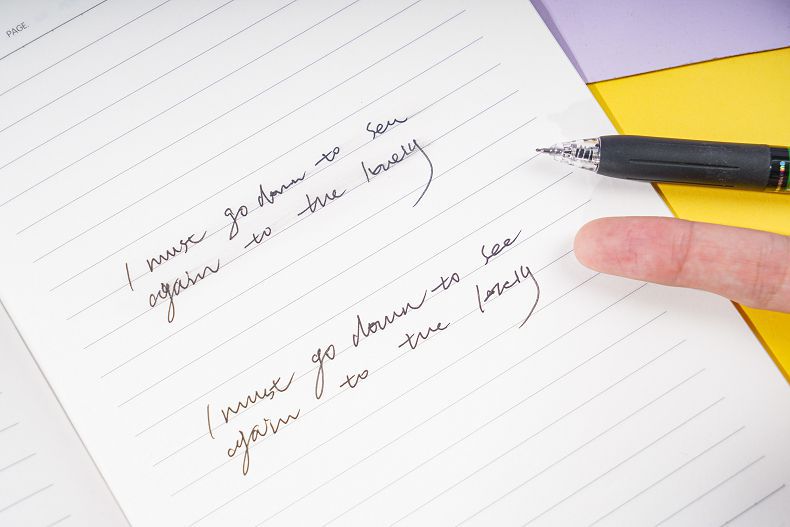 PAGE.
I must go down to sea
again to the lovely
I must go down to see
again to the lovely